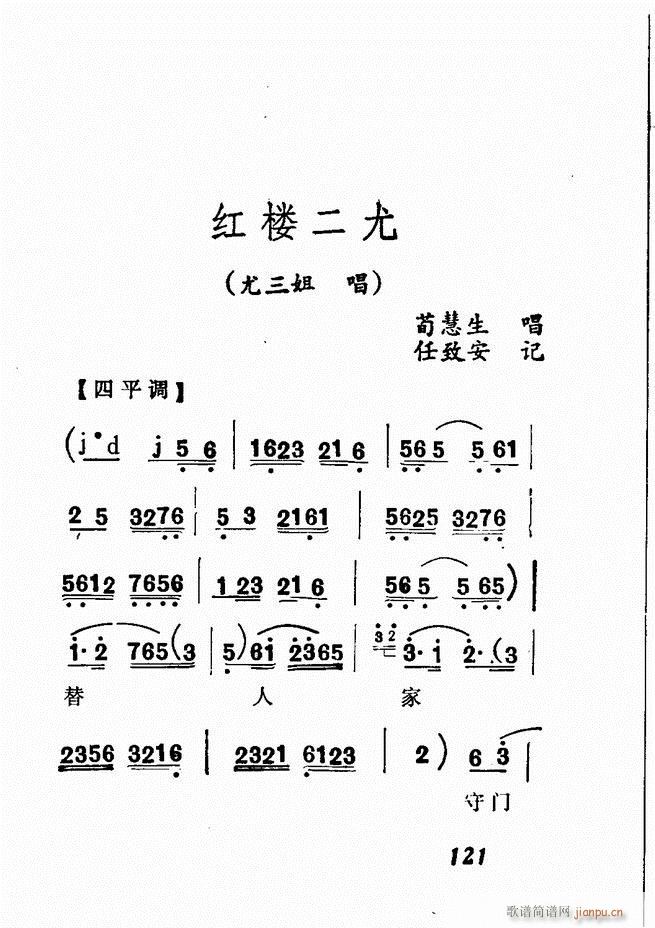 红楼二尤
(尤三姐 唱)
荀慧生 唱
任致安 记
【四平调】
(j•d j 5 6 | 1623 216 | 565 561 |
25 3276 | 53 2161 | 5625 3276 |
5612 7656 | 123 216 | 565 565) |
1·2 765(3 | 5)61 2365 | 32 3·1 2·(3
替 人 家
2356 3216 | 2321 6123 | 2) 63 |
守门
121
歌谱简谱网 jianpu.cn